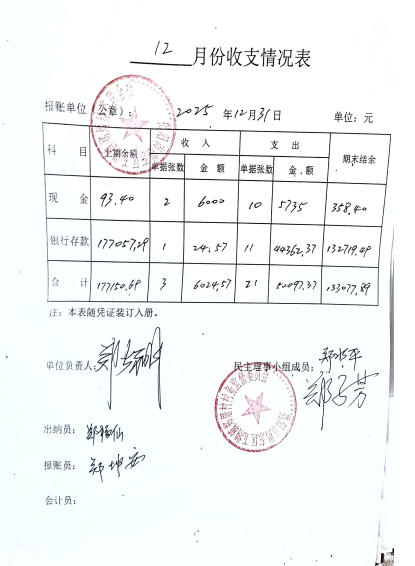 12 月份收支情况表
报账单位（公章）： 2025 年12月31日 单位：元
科 目 上期余额 收 入 支 出 期末结余
单据张数 金 额 单据张数 金 额
现 金 93.40 2 6000 10 5735 358.40
银行存款 177057.29 1 24.57 11 44362.37 132719.49
合 计 177150.69 3 6024.57 21 50097.37 133077.89
注：本表随凭证装订入册。
单位负责人： 民主理事小组成员：
出纳员：
报账员： 郑坤安
会计员：